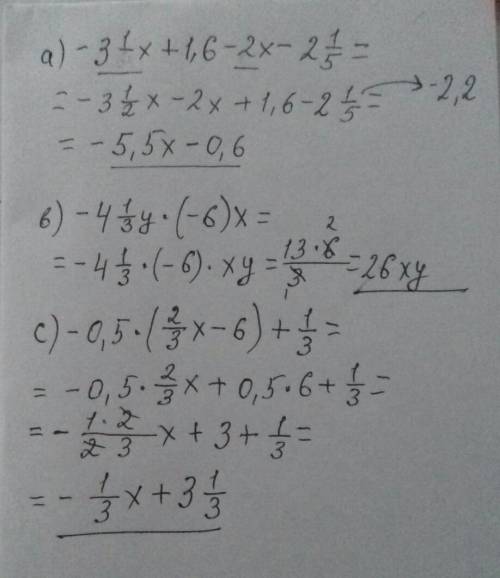 a) - 3 1/2 x + 1,6 - 2x - 2 1/5 =
= - 3 1/2 x - 2x + 1,6 - 2 1/5 = → -2,2
= - 5,5x - 0,6
в) - 4 1/3 y · (-6)x =
= - 4 1/3 · (-6) · xy = 13 · 6 2 / 3 1 = 26xy
c) - 0,5 · (2/3 x - 6) + 1/3 =
= - 0,5 · 2/3 x + 0,5 · 6 + 1/3 =
= - 1 · 2 / 2 3 x + 3 + 1/3 =
= - 1/3 x + 3 1/3